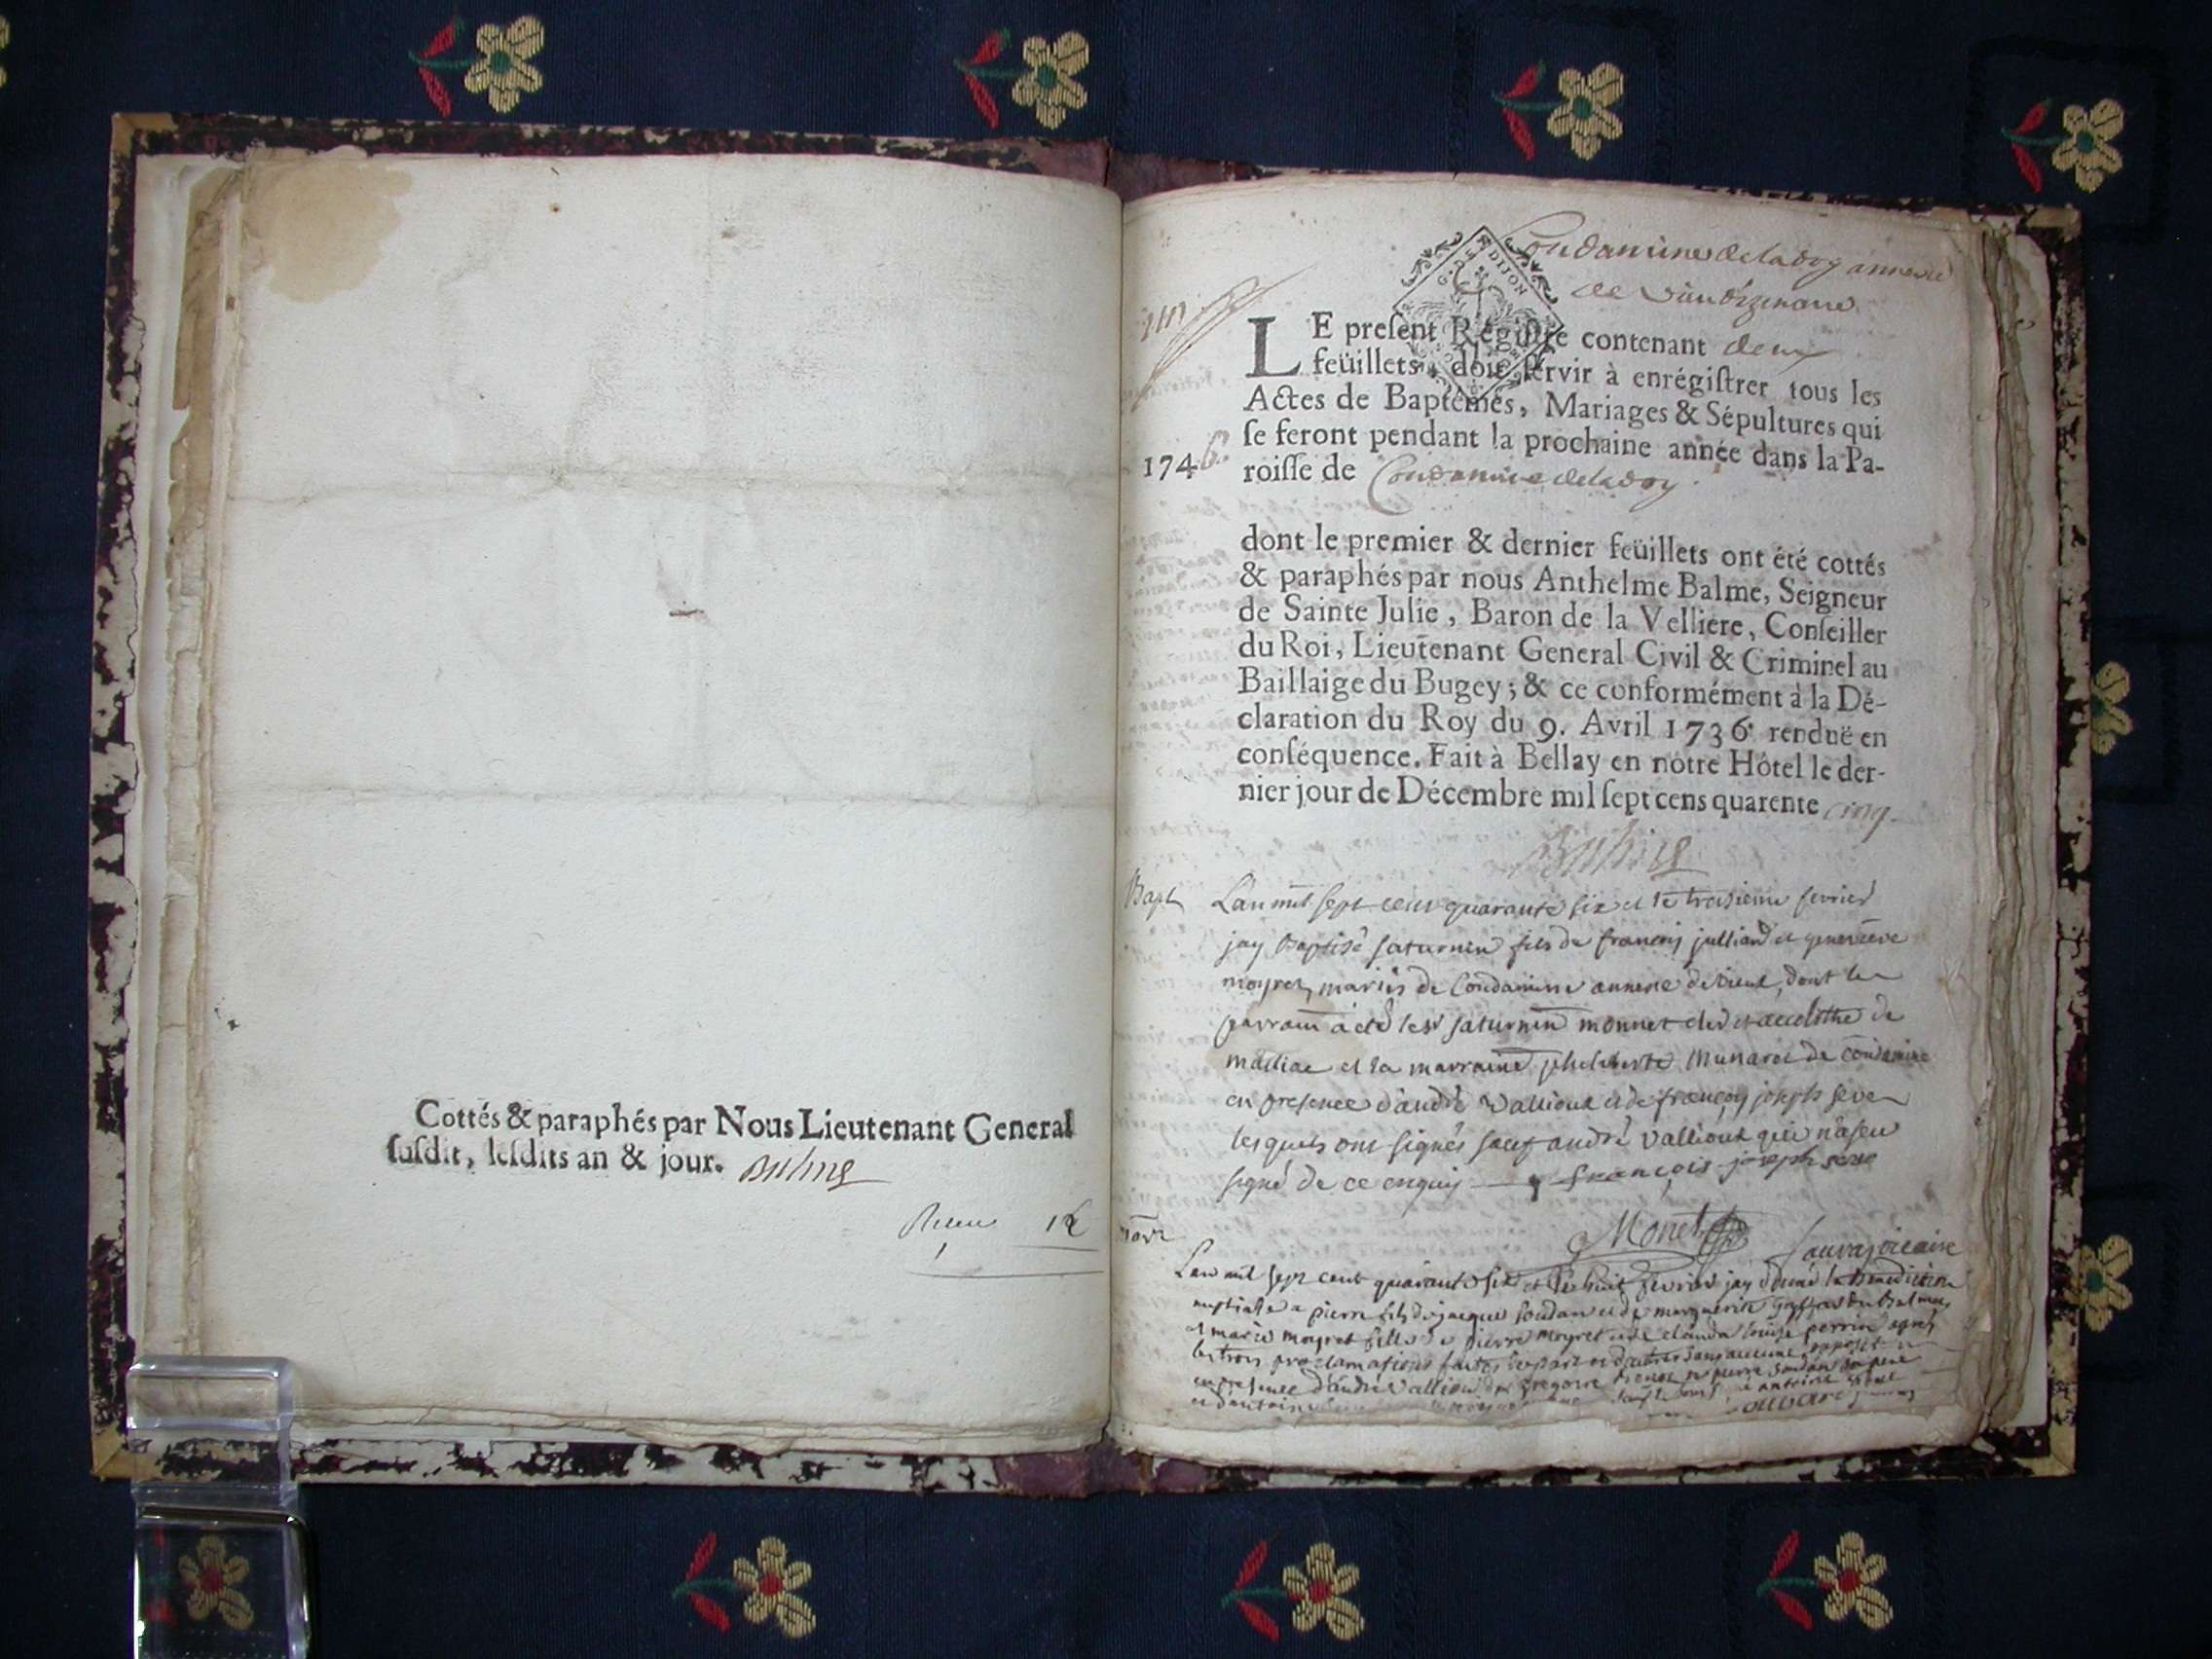 Cottés & paraphés par Nous Lieutenant General
ſuſdit, leſdits an & jour. Balme
Condamine de la doy annexe
de
G. DE DIJON
LE preſent Régiſtre contenant deux
feüillets, doit ſervir à enrégiſtrer tous les
Actes de Baptêmes, Mariages & Sépultures qui
ſe feront pendant la prochaine année dans la Pa-
1746.
roiſſe de Condamine de la doy
dont le premier & dernier feüillets ont été cottés
& paraphés par nous Anthelme Balme, Seigneur
de Sainte Julie, Baron de la Velliere, Conſeiller
du Roi, Lieutenant General Civil & Criminel au
Baillaige du Bugey; & ce conformément à la Dé-
claration du Roy du 9. Avril 1736 renduë en
conſéquence. Fait à Bellay en nôtre Hôtel le der-
nier jour de Décembre mil ſept cens quarente cinq.
Balme
Bapt
L'an mil sept cent quarante six et le troisieme fevrier
jay Baptisé saturnin fils de françois julliard et genevieve
moyret mariés de Condamine annexe de vieux, dont le
parrain a été le sr saturnin monnet clerc et accolithe de
mailliac et la marraine philiberte Munaret de Condamine
en presence d'andré vallioux et de françois joseph seve
lesquels ont signés sauf andré vallioux qui n'a seu
signé de ce enquis françois joseph seve
Monet
Sauvajo vicaire
mar
L'an mil sept cent quarante six et le huit fevrier jay donné la Benediction
nuptiale a pierre fils de jacque soudan et de marguerite
et marie moyret fille de pierre moyret et de claude louise perrin apres
les trois proclamations faites de part et d'autres sans aucune
en presence d'andré vallioux de gregoire pierre soudan son pere
et d'antoine